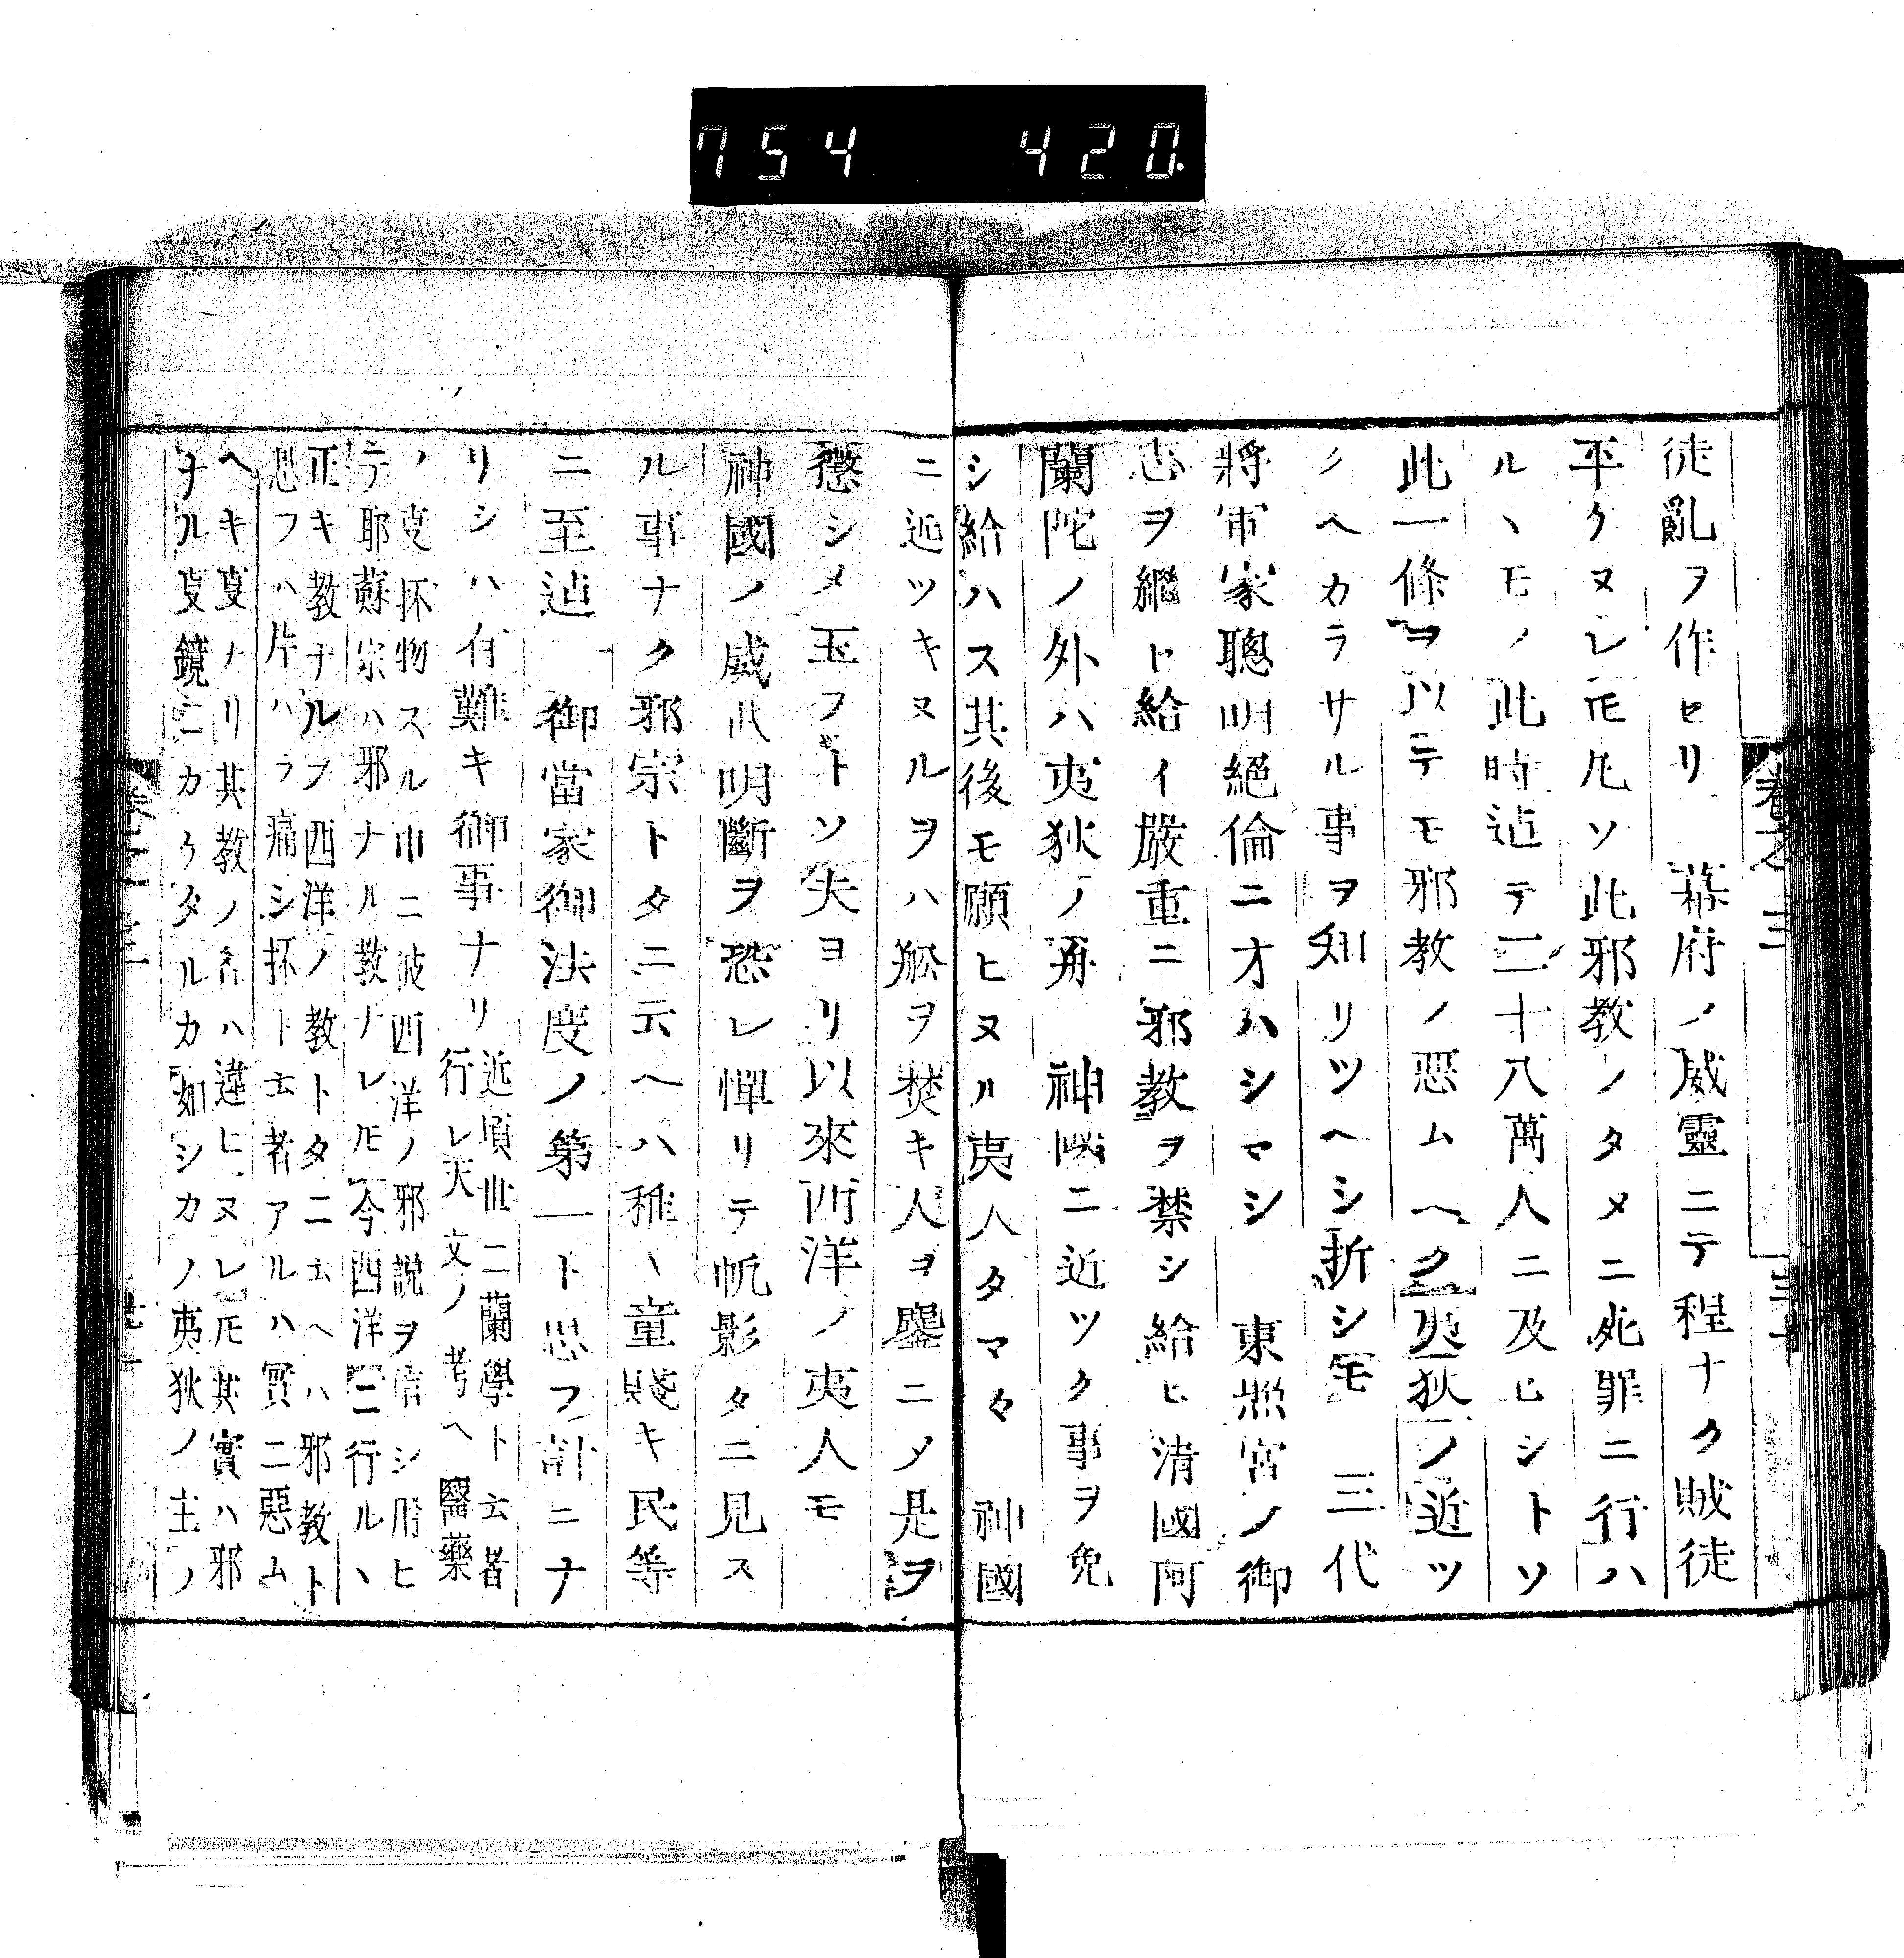 754 420.
卷之三
三十
徒亂ヲ作セリ 幕府ノ威靈ニテ程ナク賊徒
平クヌレ𪜈凡ソ此邪教ノタメニ死罪ニ行ハ
ルヽモノ此時迠テ二十八萬人ニ及ヒシトソ
此一條ヲ以テモ邪教ノ惡ムヘク夷狄ノ近ツ
クヘカラサル事ヲ知リツヘシ折シモ 三代
將軍家聰明絕倫ニオハシマシ 東照宮ノ御
志ヲ繼ト給イ嚴重ニ邪教ヲ禁シ給ヒ清國阿
蘭陀ノ外ハ夷狄ノ舟 神國ニ近ツク事ヲ免
シ給ハス其後モ願ヒヌル夷ハタマ々 神國
ニ近ツキヌルヲハ舩ヲ焚キ人ヲ鏖ニノ是ヲ
懲シメ玉フトソ夫ヨリ以來西洋ノ夷人モ
神國ノ威武明斷ヲ恐レ憚リテ帆影タニ見ス
ル事ナク邪宗トタニ云ヘハ稚ヽ童賤キ民等
ニ至迠 御當家御法度ノ第一ト思フ計ニナ
リシハ有難キ御事ナリ
近頃世ニ蘭學ト云者
行レ天文ノ考ヘ醫藥
ノ叓抔物スル中ニ彼西洋ノ邪說ヲ信シ用ヒ
テ耶蘇宗ハ邪ナル教ナレ𪜈今西洋ニ行ルヽ
正キ教ナルヲ西洋ノ教トタニ云ヘハ邪教ト
思フハ片ハラ痛シ抔ト云者アルハ實ニ惡ム
ヘキ叓ナリ其教ノ名ハ違ヒヌレ𪜈其實ハ邪
ナル叓鏡ニカケタルカ如シカノ夷狄ノ主ノ